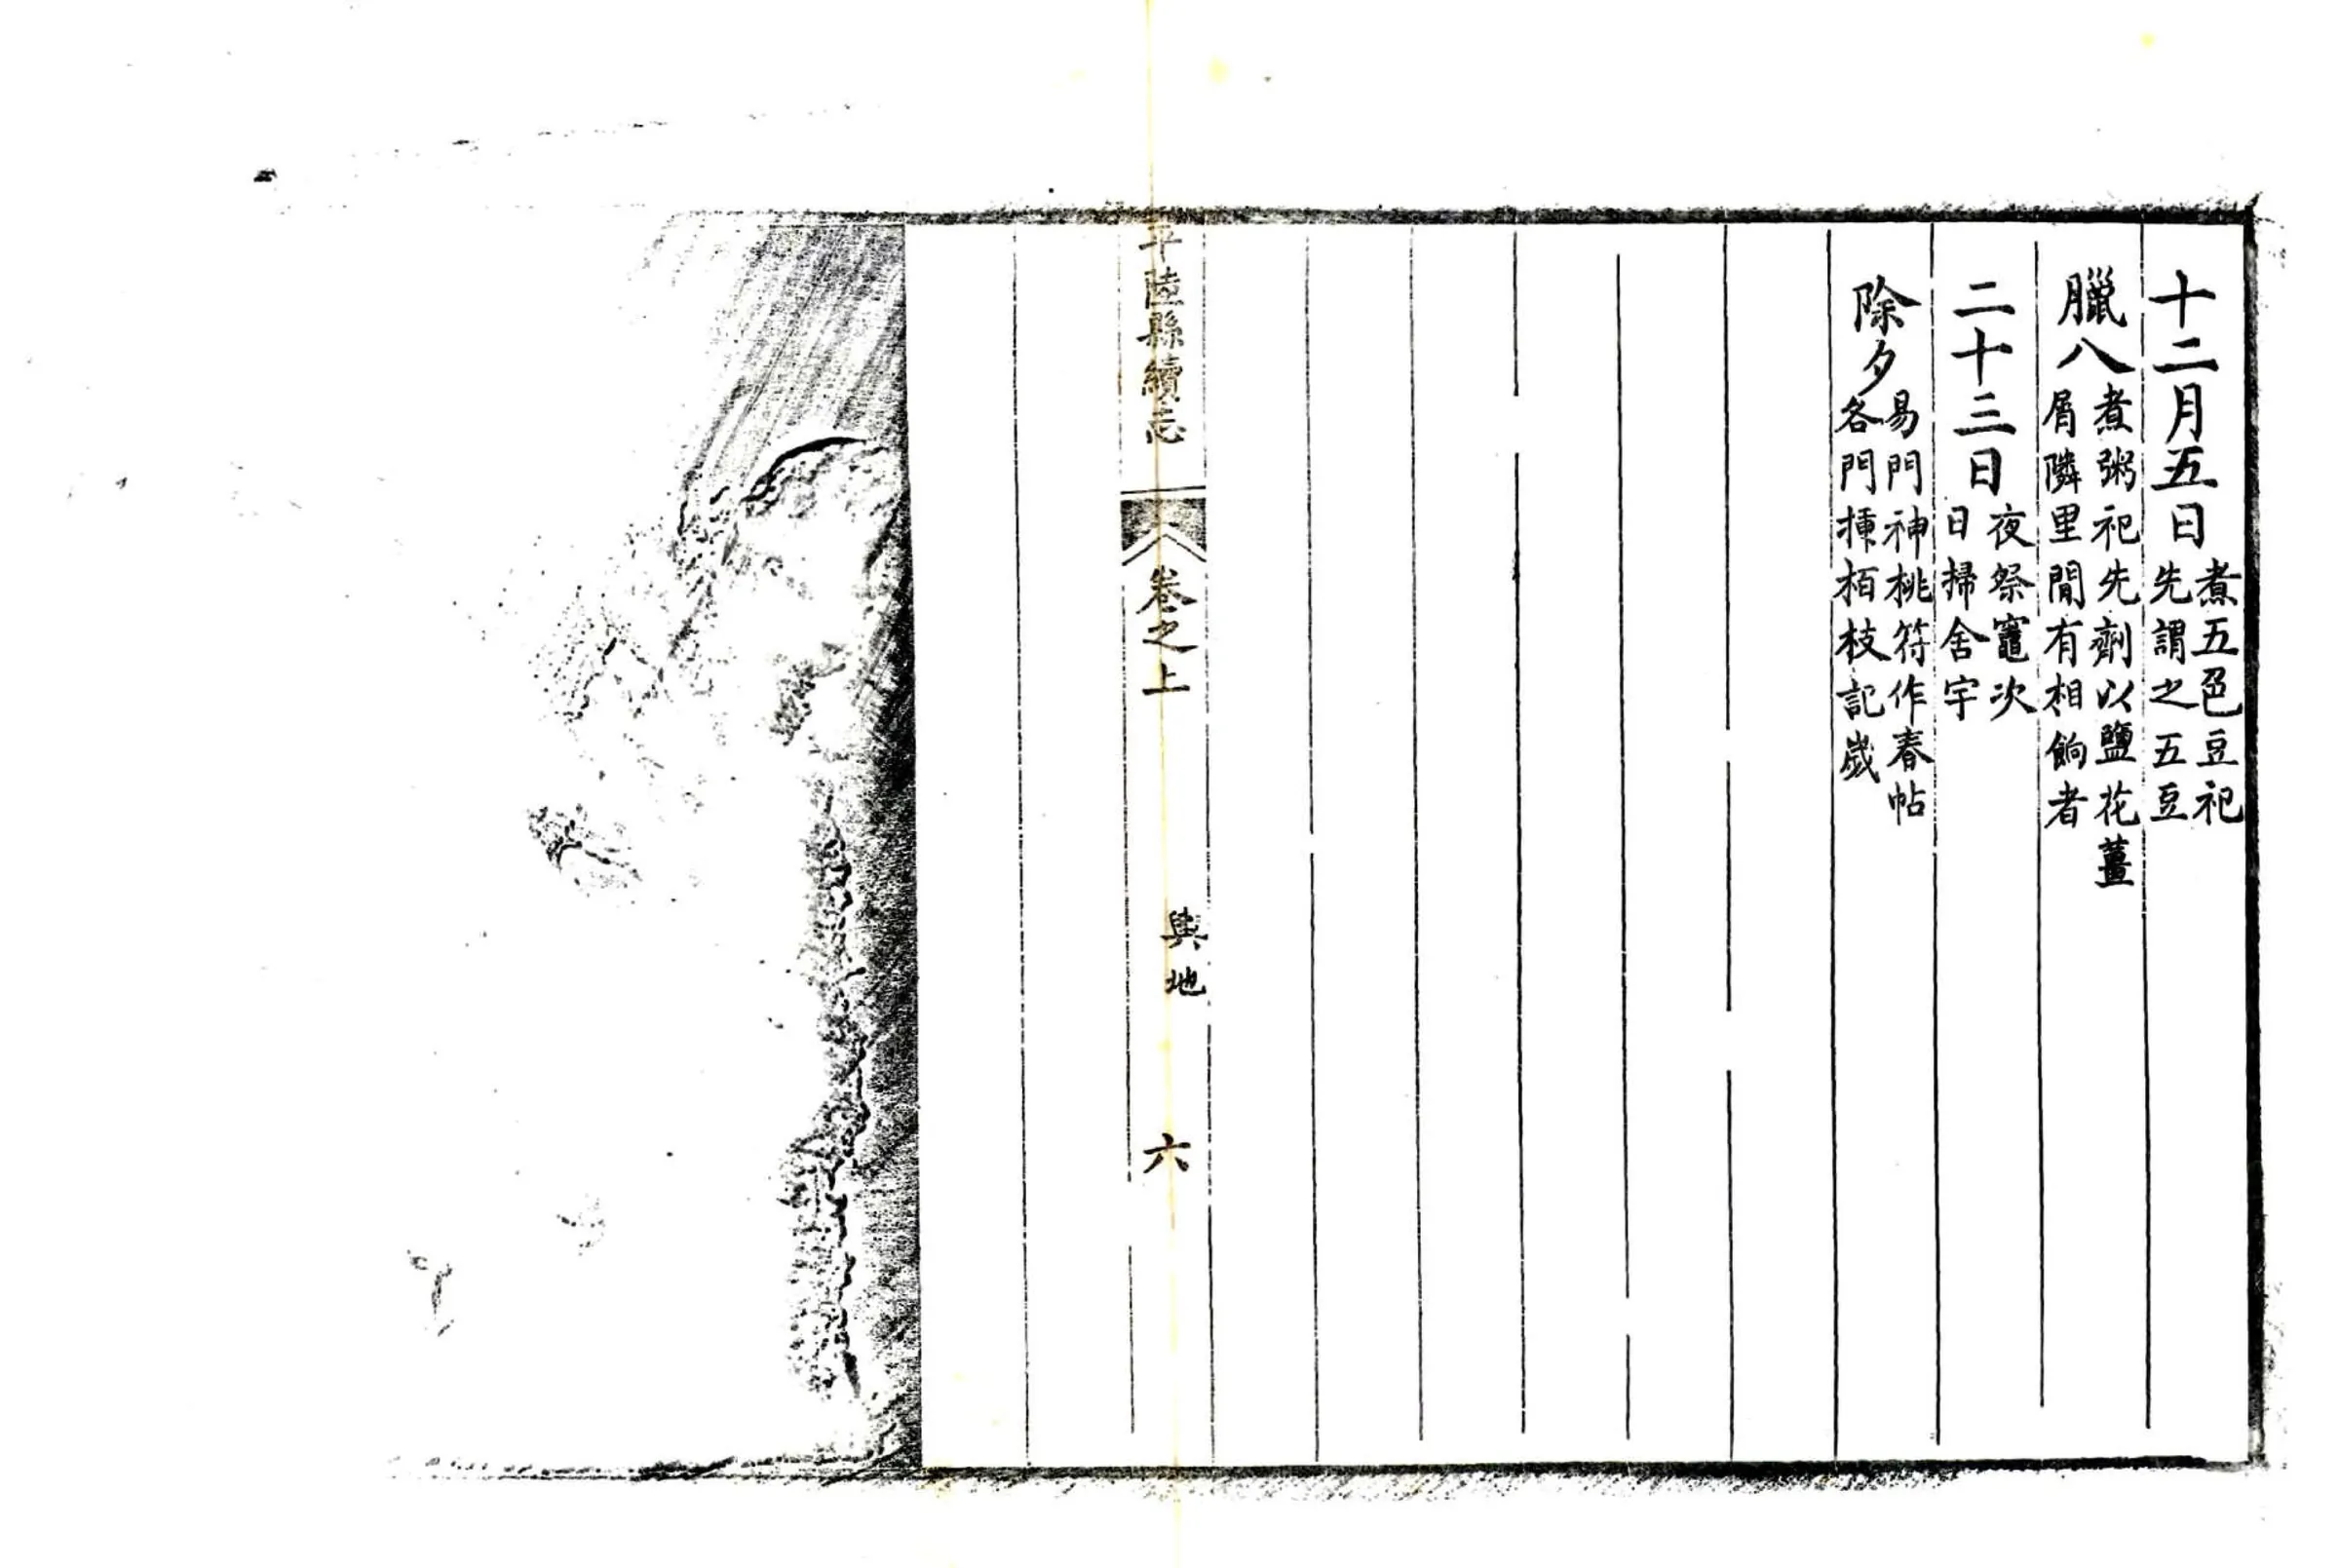 十二月五日煮五色豆祀先謂之五豆
臘八煮粥祀先劑以鹽花薑屑隣里間有相餉者
二十三日夜祭竈次日掃舍宇
除夕易門神桃符作春帖各門揷栢枝記歲
平陸縣續志
卷之上
輿地
六